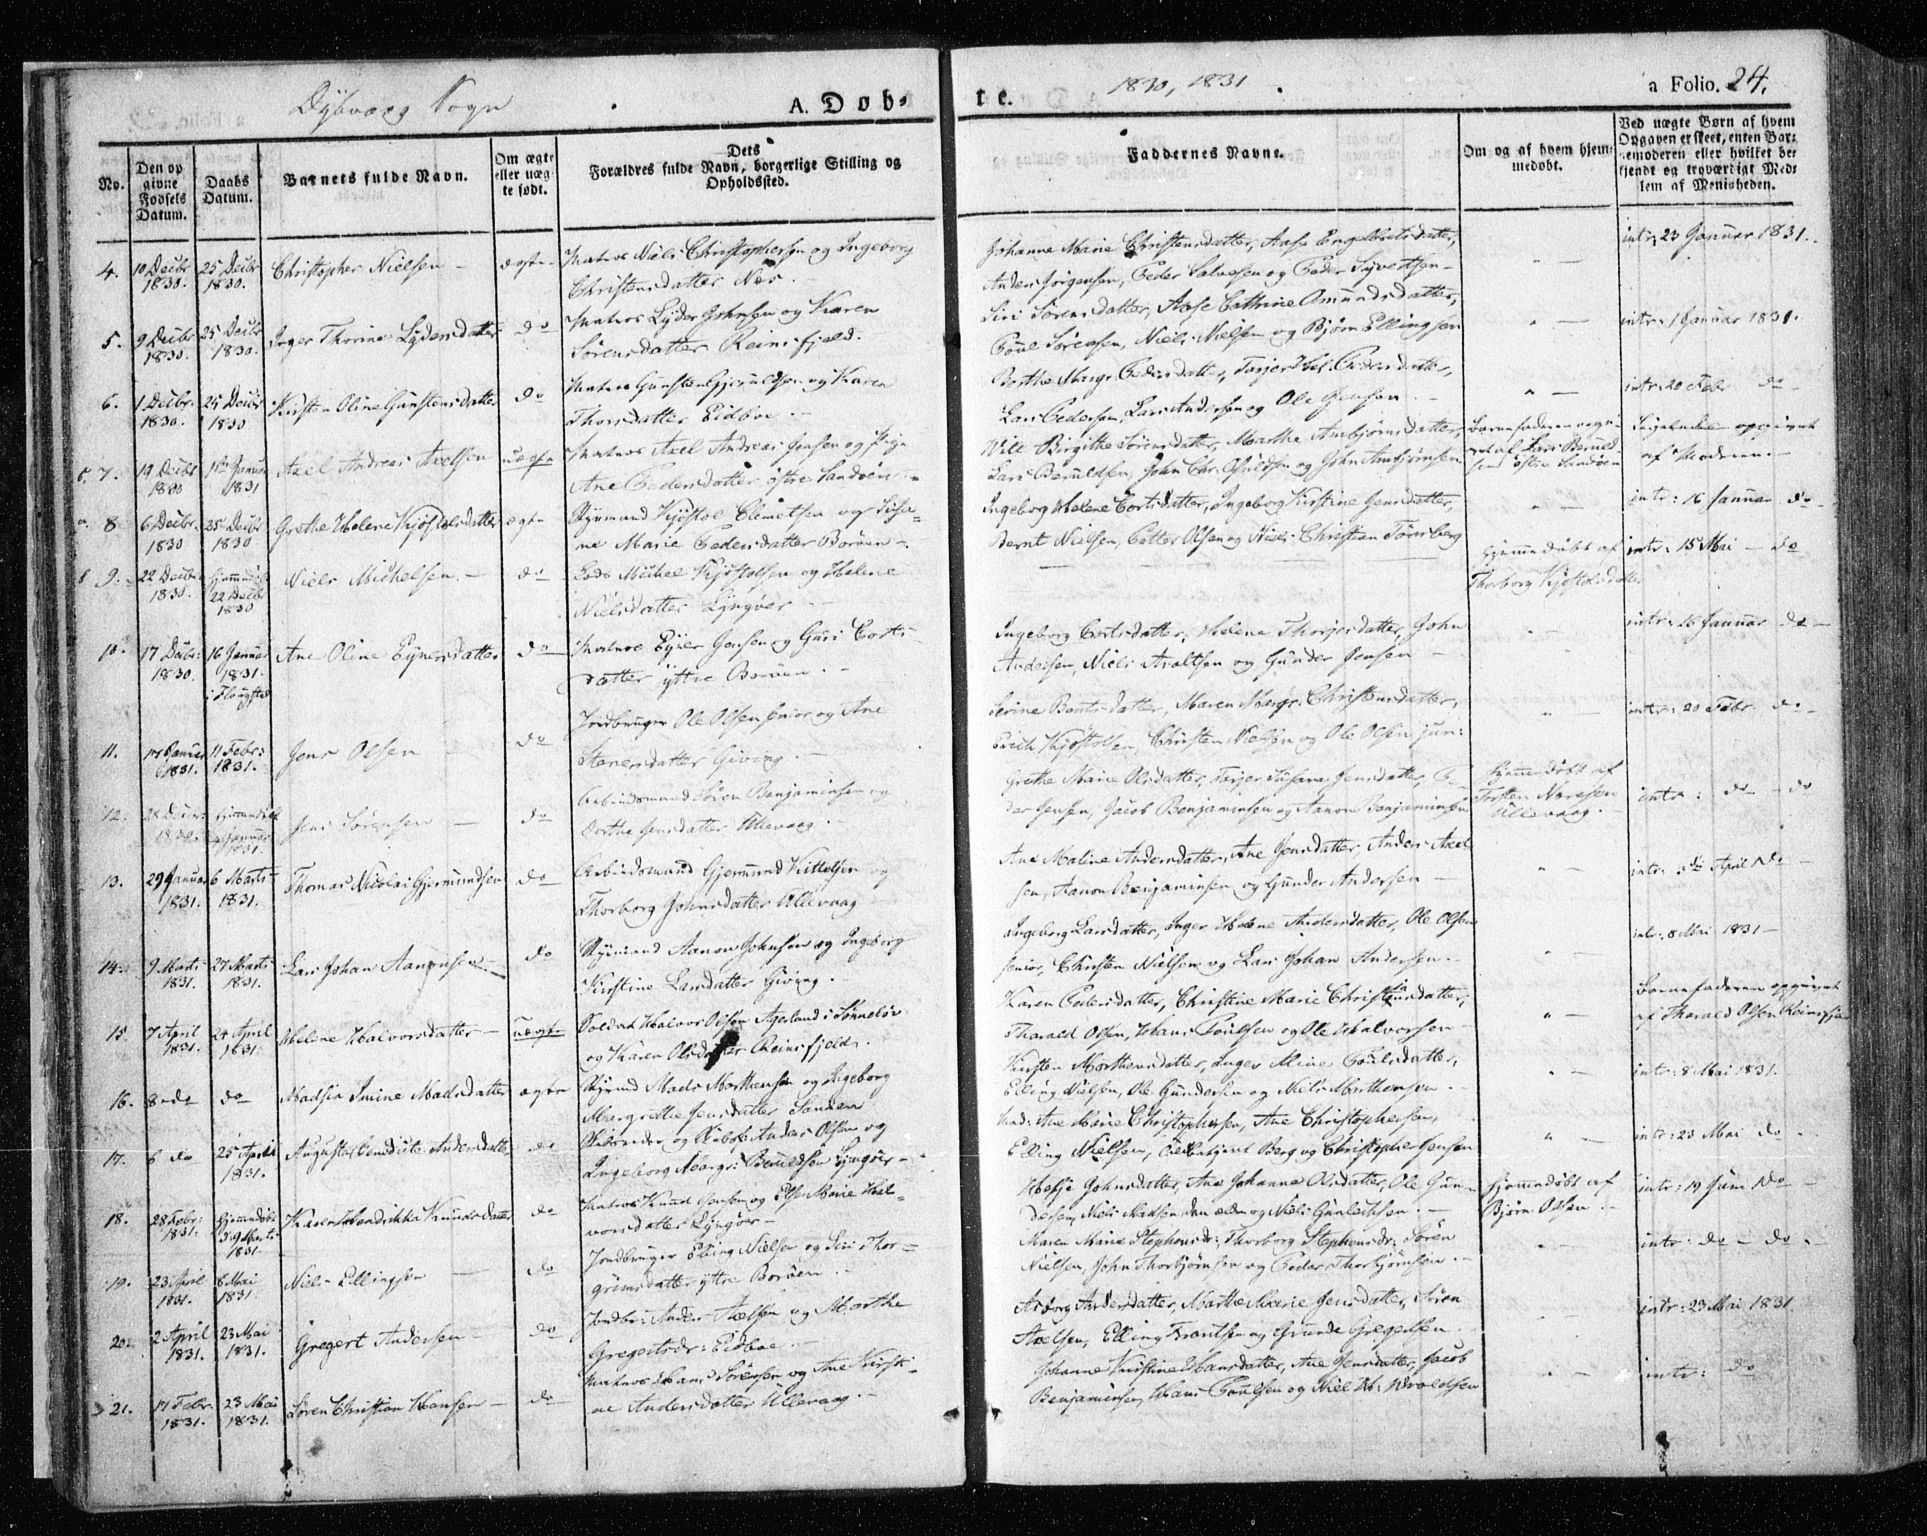 Dybvaag Sogn
A. Døb-
te.
1830, 1831
a Folio. 24.
No.
Den op
givne
Fødsels
Datum.
Daabs
Datum.
Barnets fulde Navn.
Om ægte
eller uæg-
te født.
Dets
Forældres fulde Navn, borgerlige Stilling og
Opholdssted.
Faddernes Navne.
Om og af hvem hjem-
medøbt.
Ved uægte Børn af hvem
Opgaven er skeet, enten Bar-
nemoderen eller hvilket be-
kjendt og troværdigt Med-
lem af Menigheden.
4. 10 Decbr 1830. 25 Decbr 1830. Christopher Nielsen ægte Matros Niels Christophersen og Ingeborg
Christensdatter Næs.
Johanne Marie Christensdatter, Aase Engelbretsdatter,
Anders Jørgensen, Peder Salvesen og Peder Syvertsen
intr: 23 Januar 1831.
5. 9 Decbr 1830. 25 Decbr 1830. Inger Thorine Lydersdatter do Matros Lyder Johnsen og Karen
Sørensdatter Reinsfjeld.
Siri Sørensdatter, Aase Cathrine Omundsdatter,
Poul Sørensen, Niels Nielsen og Bjørn Ellingsen
intr: 1 Januar 1831.
6. 1 Decbr 1830. 25 Decbr 1830 Kirsten Oline Gunstensdatter do Matros Gunsten Gjeruldsen og Karen
Thorsdatter Eidboe.
Berthe Margr. Pedersdatter, Pedersdatter,
Lars Pedersen, Lars Andersen og Ole Jensen
intr: 20 Febr do
7. 19 Decbr 1830 1 Januar 1831 Axel Andreas Axelsen uægte Matros Axel Andreas Jensen og Pige
Ane Pedersdatter østre Sandøen
Birgithe Sørensdatter, Marthe Ambjørnsdatter,
Lars Beruldsen, John Chr. og John Ambjørnsen
Barnefaderen
af Lars Beruld-
sen østre Sandøen
opgivet
af Moderen.
8. 6 Decbr. 1830 25 Decbr 1830 Grethe Helene Kjøstolsdatter ægte Kjøstol Clemetsen og Susa-
ne Marie Pedersdatter Borøen.
Ingeborg Helene Cortsdatter, Ingeborg Kirstine Jensdatter,
Bernt Nielsen, Petter Olsen og Niels Christian Tønsberg
intr: 16 Januar do
9. 22 Decbr. 1830. hjemmedøbt 22 Decbr 1830 Niels Michelsen. do Lods Michel Kjøstolsen og Helene
Nielsdatter Lyngøer
Hjemmedøbt af
Thorborg Kjøstolsdatter
intr: 15 Mai do
10. 17 Decbr. 1830. 16 Januar 1831. i Flougstad Ane Oline Eynersdatter do Matros Eyner Jensen og Guri Corts-
datter yttre Borøen.
Ingeborg Cortsdatter, Helene Thorjersdatter, John
Andersen, Niels og Gunder Jensen
intr: 16 Januar do
11. Januar 1831. 11 Febr: 1831. Jens Olsen do Jordbruger Ole Olsen senior og Ane
Stenersdatter Giving.
Serine Berntsdatter, Maren Margr. Christensdatter,
Erich Kjøstolsen, Christen Nielsen og Ole Olsen jun:
intr: 20 Febr. do
12. Decbr 1830. Hjemmedøbt Januar 1831. Jens Sørensen do Arbeidsmand Søren Benjaminsen og
Dorthe Jensdatter Ullevaag.
Grethe Marie Olsdatter, Susane Jensdatter, Pe-
der Jensen, Jacob Benjaminsen og Aanon Benjaminsen
Hjemmedøbt af
Ullevaag.
intr: do do
13. 29 Januar 1831. 6 Marts 1831. Thomas Nicolai Gjermundsen do Arbeidsmand Gjermund Kittelsen og
Thorborg Johnsdatter Ullevaag
Ane Maline Andersdatter, Ane Jensdatter, Anders Axel-
sen, Aanon Benjaminsen og Gunder Andersen
intr: April do
14. 9 Marts 1831. 27 Marts 1831. Lars Johan Aanonsen Aanon Johnsen og Ingeborg
Kirstine Larsdatter Giving.
do
Ingeborg Larsdatter, Inger Helene Andersdatter, Ole Olsen
senior, Christen Nielsen og Lars Johan Andersen.
intr: 8 Mai 1831
15. 7 April 1831. 24 April 1831. Helene Halvorsdatter uægte Soldat Halvor Olsen Agerland i Sønneløv
og Karen Olsdatter Reinsfjeld.
Karen Pedersdatter, Christine Marie Christensdatter,
Tharald Olsen, Hans Poulsen og Ole Halvorsen
Barnefaderen opgivet
af Tharald Olsen Reinsfjeld
16. 8 do do Madsia Smine Madsdatter ægte Mads Morthensen og Ingeborg
Margrethe Jensdatter Sanden
Kirsten Morthensdatter, Inger Aline Poulsdatter,
Elling Nielsen, Ole Gundersen og Niels Morthensen
intr: 8 Mai 1831.
17. 6 do 25 April 1831. Augusta Benedicte Andersdatter do Anders Olsen og
Ingeborg Margr: Beruldsen Lyngøer
Ane Marie Christophersen, Ane Christophersen,
Elling Nielsen, Berg og Christopher Jensen
intr: 23 Mai do
18. 28 Febr: 1831. Hjemmedøbt d: 9 Marts 1831. Karen Hendrikka Knudsdatter do Matros Knud Jensen og Else Marie Hal-
vorsdatter Lyngøer
Johnsdatter, Ane Johanne Olsdatter, Ole Gun-
dersen, Niels Madsen den ældre og Niels
Hjemmedøbt af
Bjørn Olsen.
intr: 19 Juni do
19. 23 April 1831. 8 Mai 1831. Niels Ellingsen do Jordbruger Elling Nielsen og Siri Thor-
grimsdatter yttre Borøen.
Maren Marie Stephensdr: Thorborg Stephensdr: Søren
Nielsen, John Thorbjørnsen og Peder Thorbjørnsen
intr: do do
20. 2 April 1831. 23 Mai 1831. Gregert Andersen do Jordbr: Anders Axelsen og Marthe
Gregertsdr: Eidboe.
Asborg Andersdatter, Marthe Marie Jensdatter, Søren
Axelsen, Elling Frantsen og Grunde Gregersen
intr: 23 Mai 1831
21. 17 Febr. 1831. 23 Mai 1831. Søren Christian Hansen do Matros Hans Sørensen og Ane Kirsti-
ne Andersdatter Ullevaag
Johanne Kirstine Hansdatter, Ane Jensdatter, Jacob
Benjaminsen, Hans Poulsen og Niels
intr: do